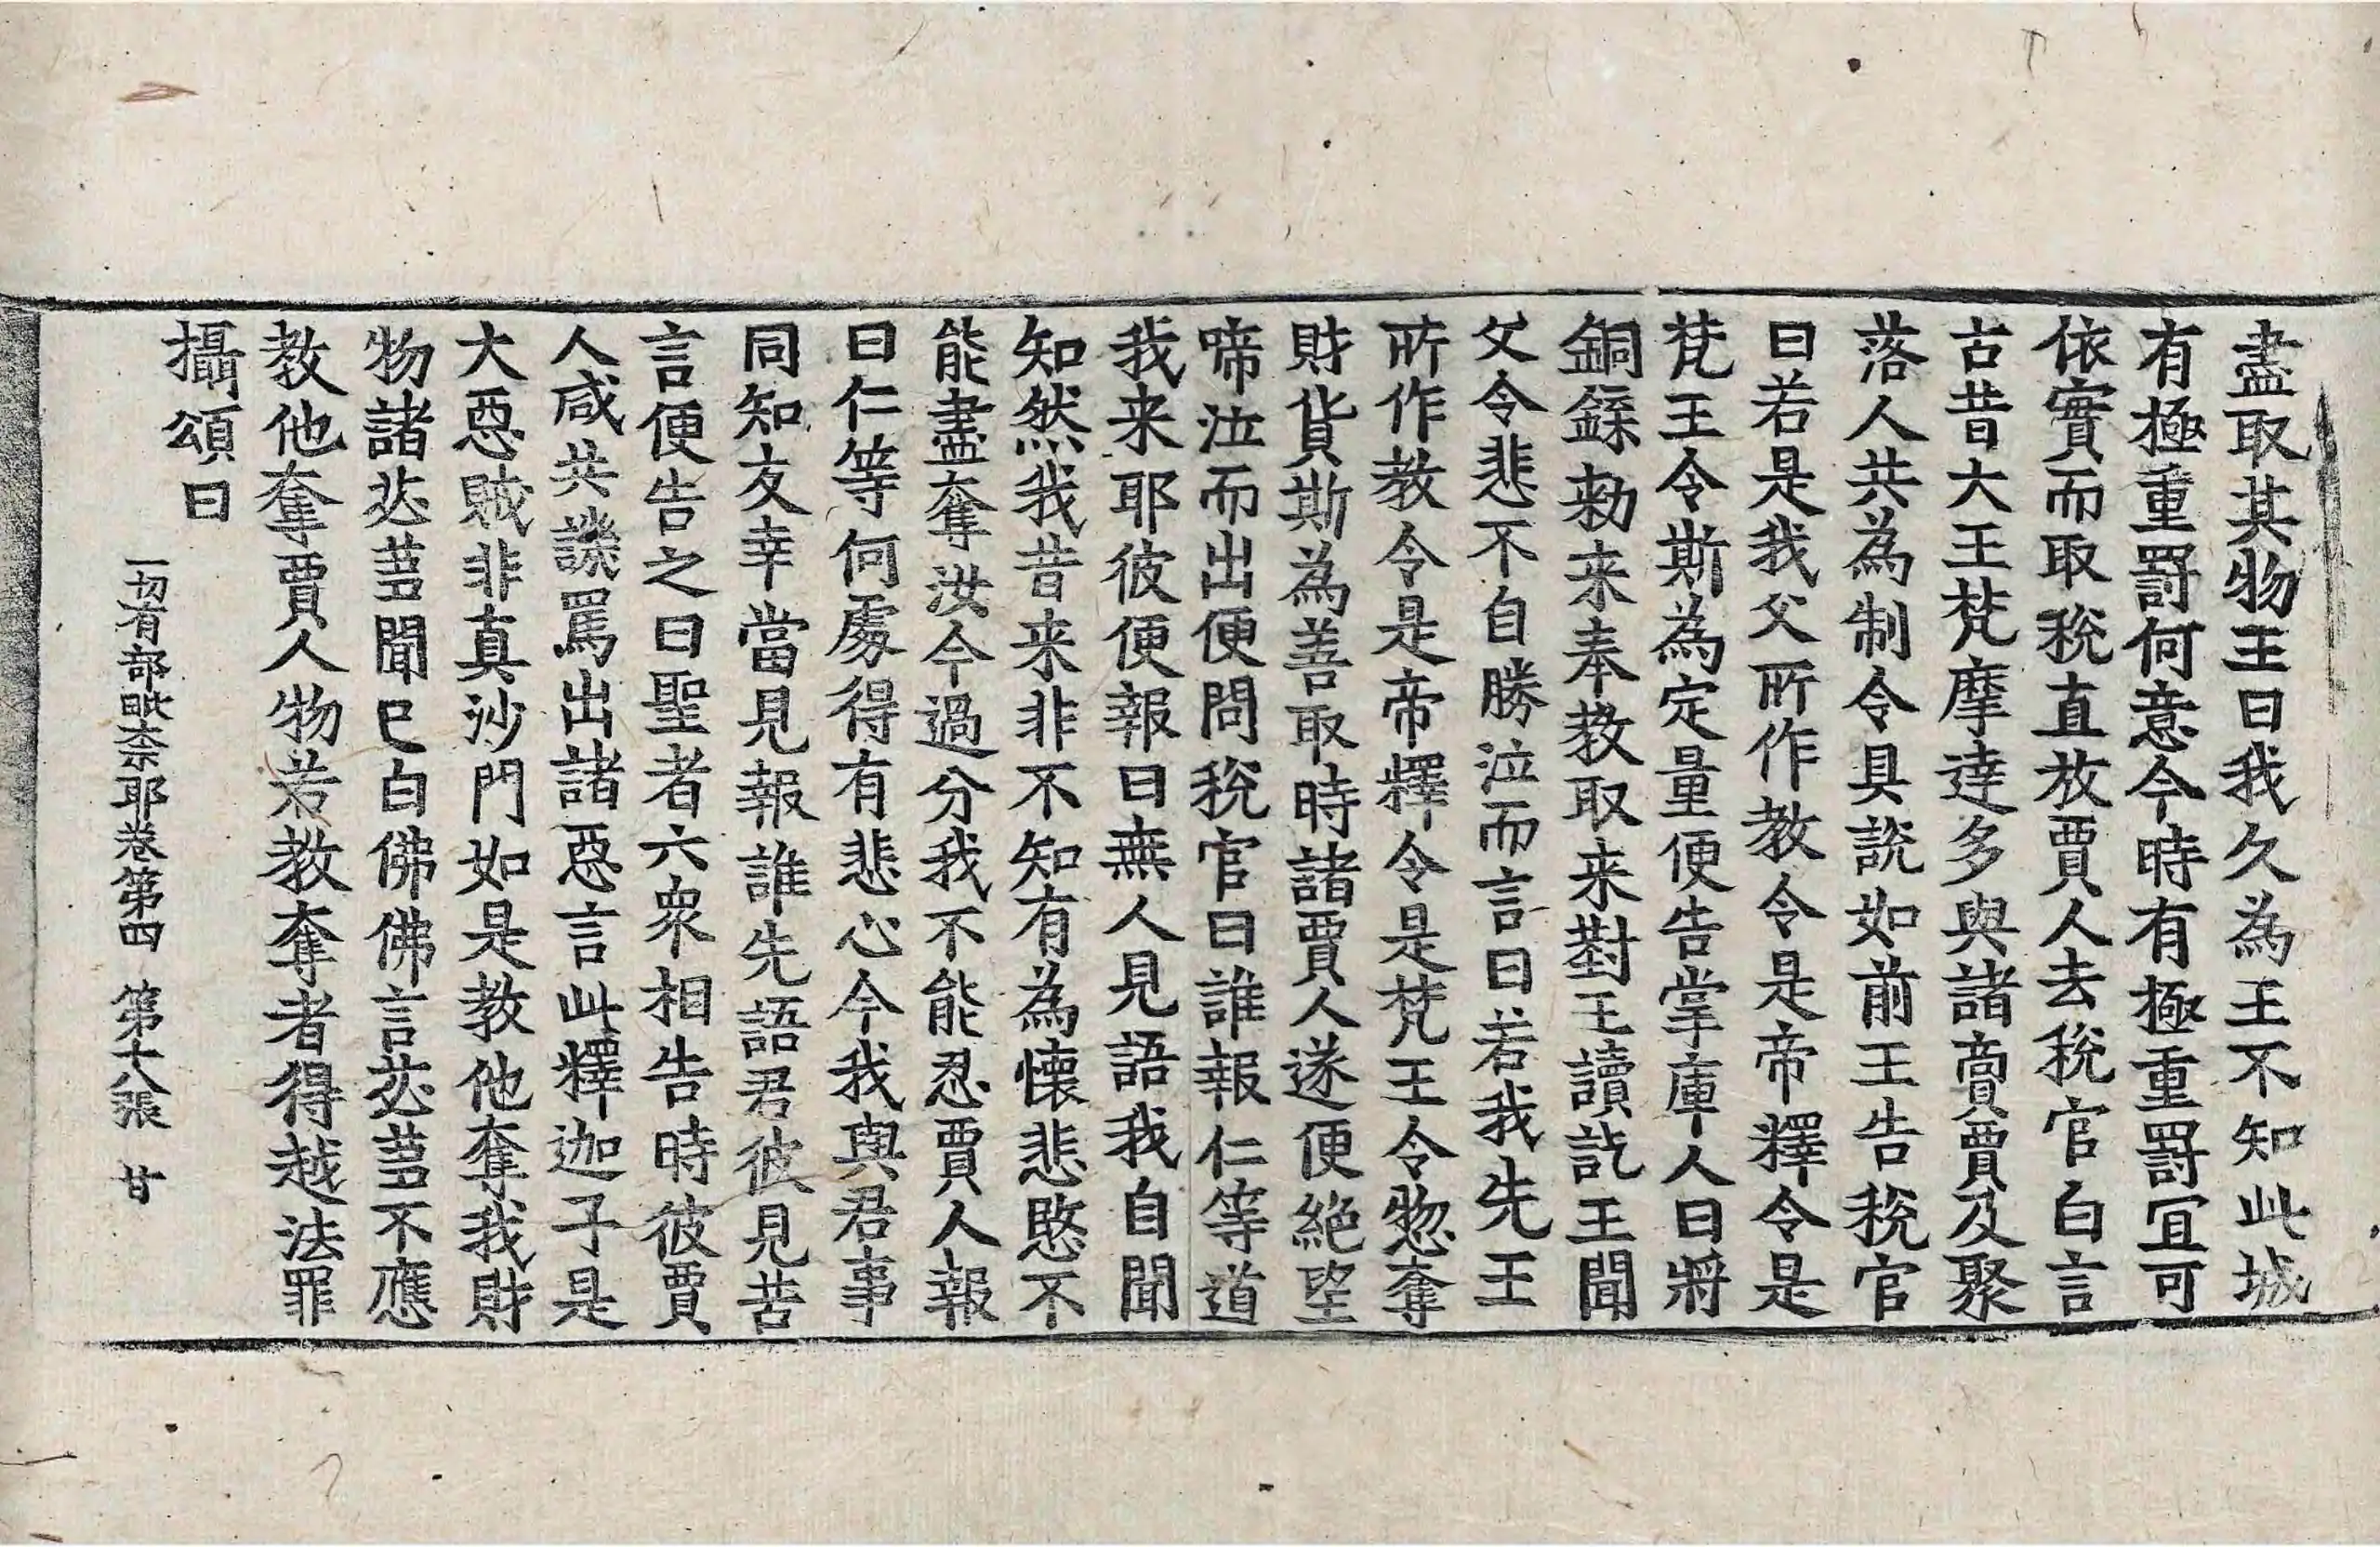 盡取其物王曰我久為王不知此城
有極重罰何意今時有極重罰冝可
依實而取稅直放賈人去稅官白言
古昔大王梵摩達多與諸啇賈及聚
落人共為制令具說如前王告稅官
曰若是我父所作教令是帝釋令是
梵王令斯為定量便告掌庫人曰將
銅鍱勑来奉教取来對王讀訖王聞
父令悲不自勝泣而言曰若我先王
所作教令是帝釋令是梵王令惣奪
財貨斯為善取時諸賈人遂便絕望
啼泣而出便問稅官曰誰報仁等道
我来耶彼便報曰無人見語我自聞
知然我昔来非不知有為懷悲愍不
能盡奪汝今過分我不能忍賈人報
曰仁等何處得有悲心今我與君事
同知友幸當見報誰先語君彼見苦
言便告之曰聖者六衆相告時彼賈
人咸共譏罵出諸惡言此釋迦子是
大惡賊非真沙門如是教他奪我財
物諸苾蒭聞已白佛佛言苾蒭不應
教他奪賈人物若教奪者得越法罪
攝頌曰
一切有部毗奈耶卷第四 第十八張 甘